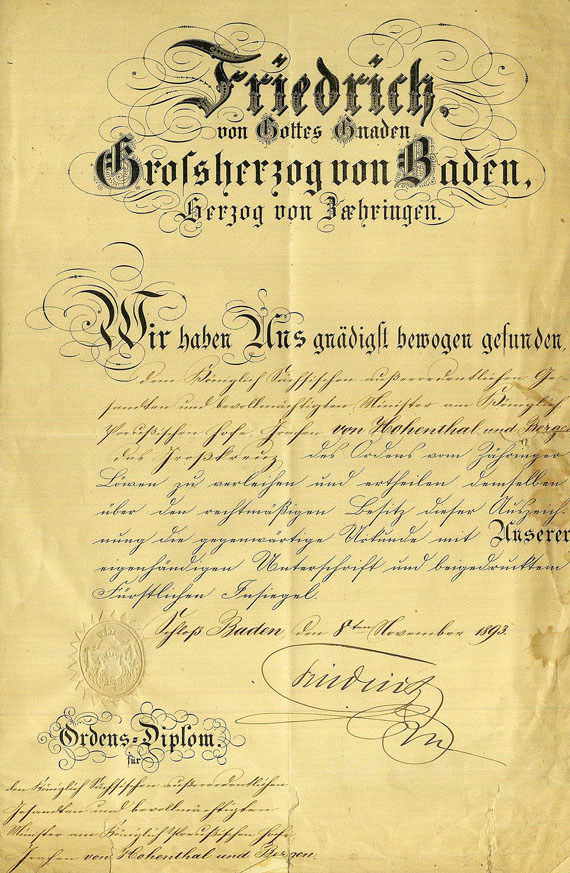 Friedrich,
von Gottes Gnaden
Grossherzog von Baden,
Herzog von Zæhringen.
Wir haben Uns gnädigst bewogen gefunden,
dem Königlich Sächsischen außerordentlichen Ge-
sandten und bevollmächtigten Minister am Königlich
Preußischen Hofe, Grafen von Hohenthal und Bergen
das Großkreuz des Ordens vom Zähringer
Löwen zu verleihen und ertheilen demselben
über den rechtmäßigen Besitz dieser Auszeich-
nung die gegenwärtige Urkunde mit Unserer
eigenhändigen Unterschrift und beigedrucktem
Fürstlichen Insiegel.
Schloß Baden, den 8ten November 1893.
Friedrich
Ordens-Diplom.
für
den Königlich Sächsischen außerordentlichen
Gesandten und bevollmächtigten
Minister am Königlich Preußischen Hofe
Grafen von Hohenthal und Bergen.